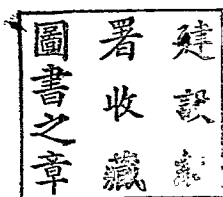 建設
署收藏
圖書之章